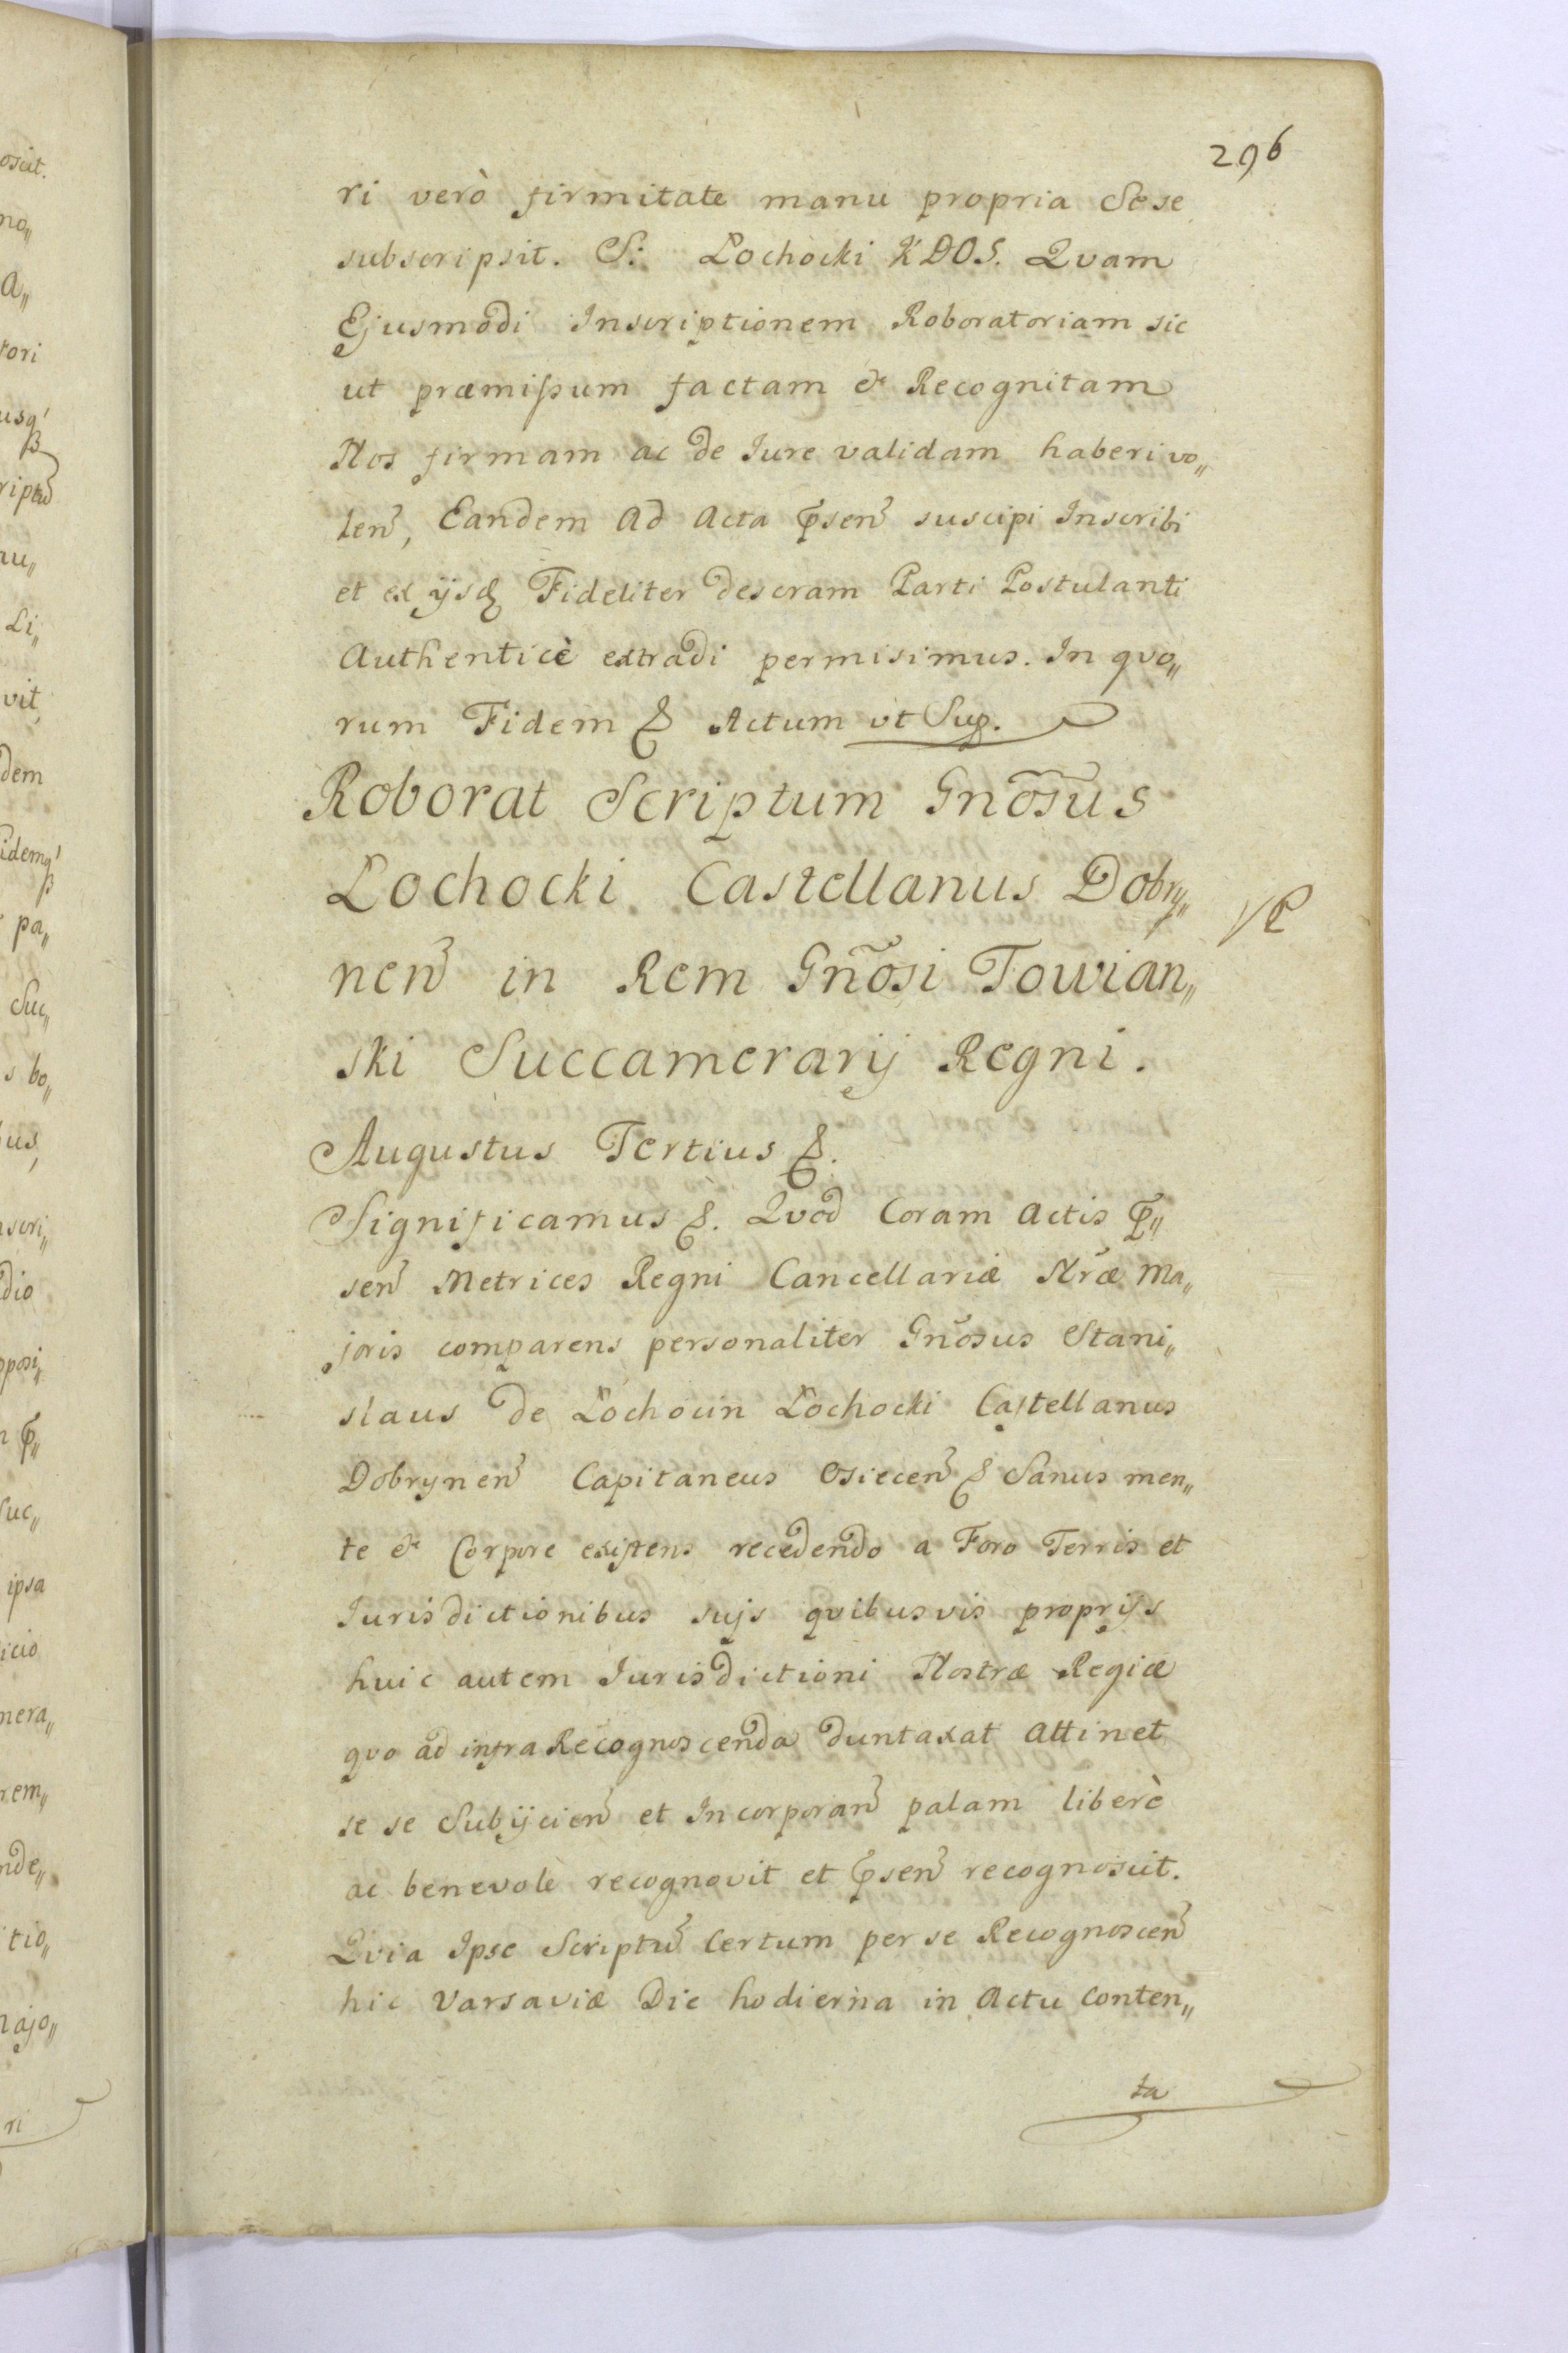 296
ri verò firmitate manu propria Sese
subscripsit. S: Łochocki KDOS. Qvam
Ejusmodi Inscriptionem Roboratoriam sic
ut præmissum factam & Recognitam
Nos firmam ac de Jure validam haberi vo„
len̄, Eandem Ad Acta p̄sen̄ suscipi Inscribi
et ex ijsq Fideliter descram Parti Postulanti
Authenticè extradi permisimus. In qvo„
rum Fidem & Actum ut Sup.
Roborat Scriptum Gnōsus
Łochocki Castellanus Dobry„
nen̄ in Rem Gnōsi Towian„
ski Succamerarij Regni.
Augustus Tertius &.
Significamus &. Qvod Coram Actis p̄„
sen̄ Metrices Regni Cancellariæ Nr̄æ Ma„
joris comparens personaliter Gnōsus Stani„
slaus de Łochocin Łochocki Castellanus
Dobrynen̄ Capitaneus Osiecen̄ & Sanus men„
te & Corpore existens recedendo a Foro Terris et
Jurisdictionibus sujs qvibusvis proprijs
huic autem Jurisdictioni Nostræ Regiæ
qvo ad infra Recognoscenda duntaxat attinet
se se Subijcien̄ et Incorporan̄ palam liberè
ac benevolè recognovit et p̄sen̄ recognoscit.
Qvia Ipse Scriptū Certum per se Recognoscen̄
hic Varsaviæ Die hodierna in Actu Conten„
ta